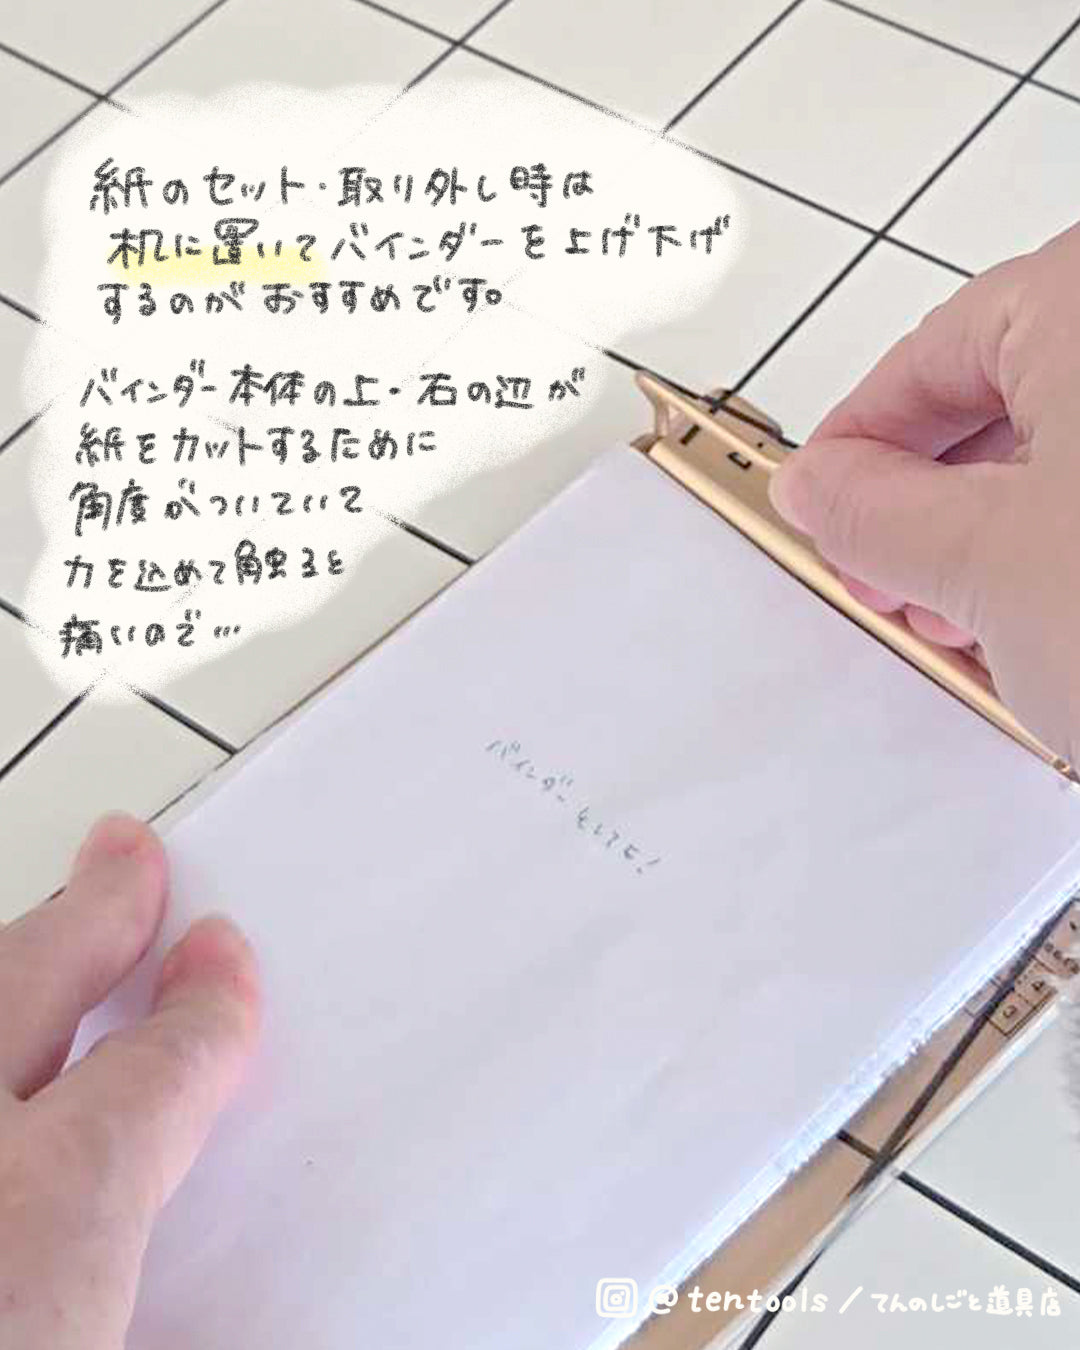 紙のセット・取り外し時は
机に置いてバインダーを上げ下げ
するのがおすすめです。
バインダー本体の上・右の辺が
紙をカットするために
角度がついていて
力を込めて触ると
痛いので…
バインダーとしても!
@tentools / てんのしごと道具店